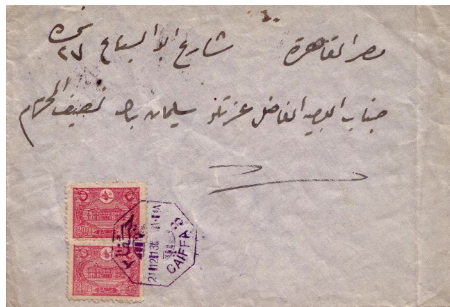 مصر القاهرة شارع ابو السباع نمرة ٢٧
جناب الفاضل عزتلو سليمان بك ناصيف المحترم
CAIFFA